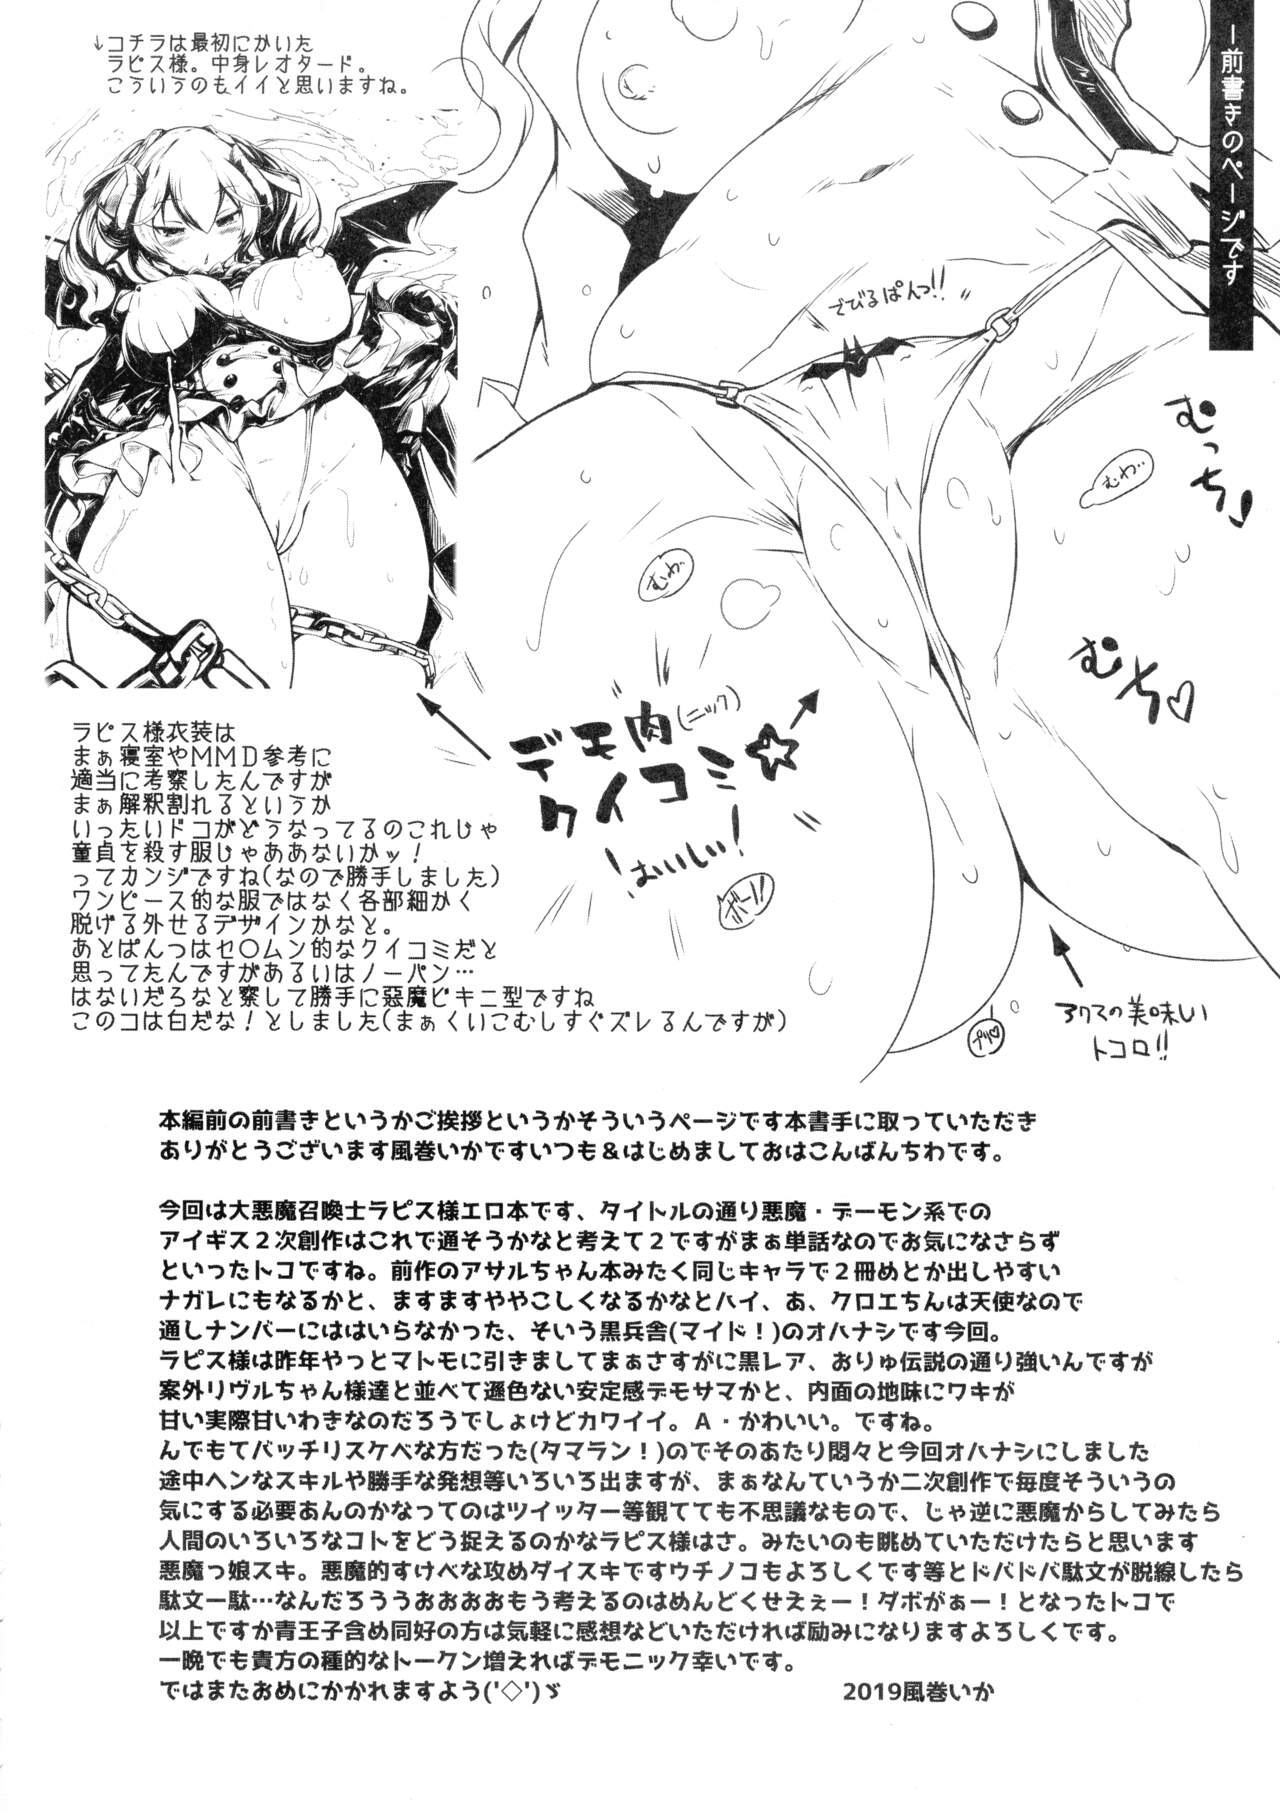 －前書きのページです
↓コチラは最初にかいた
ラピス様。中身レオタード。
こういうのもイイと思いますね。
でびるぱんっ!!
むっち♪
むわ゛
むわ゛
むちっ♡
デモ肉(ニック)
クイコミ☆
!おいしい!
ボーン!!
プリ♡
アクマの美味しい
トコロ!!
ラピス様衣装は
まぁ寝室やMMD参考に
適当に考察したんですが
まぁ解釈割れるというか
いったいドコがどうなってるのこれじゃ
童貞を殺す服じゃああないかッ！
ってカンジですね(なので勝手しました)
ワンピース的な服ではなく各部細かく
脱げる外せるデザインかなと。
あとぱんつはセ〇ムン的なクイコミだと
思ってたんですがあるいはノーパン…
はないだろなと察して勝手に悪魔ビキニ型ですね
このコは白だな！としました(まぁくいこむしすぐズレるんですが)
本編前の前書きというかご挨拶というかそういうページです本書手に取っていただき
ありがとうございます風巻いかですいつも＆はじめましておはこんばんちわです。
今回は大悪魔召喚士ラピス様エロ本です、タイトルの通り悪魔・デーモン系での
アイギス２次創作はこれで通そうかなと考えて２ですがまぁ単話なのでお気になさらず
といったトコですね。前作のアサルちゃん本みたく同じキャラで２冊めとか出しやすい
ナガレにもなるかと、ますますややこしくなるかなとハイ、あ、クロエちんは天使なので
通しナンバーにははいらなかった、そいう黒兵舎(マイド！)のオハナシです今回。
ラピス様は昨年やっとマトモに引きましてまぁさすがに黒レア、おりゅ伝説の通り強いんですが
案外リヴルちゃん様達と並べて遜色ない安定感デモサマかと、内面の地味にワキが
甘い実際甘いわきなのだろうでしょけどカワイイ。A・かわいい。ですね。
んでもてバッチリスケベな方だった(タマラン！)のでそのあたり悶々と今回オハナシにしました
途中ヘンなスキルや勝手な発想等いろいろ出ますが、まぁなんていうか二次創作で毎度そういうの
気にする必要あんのかなってのはツイッター等観てても不思議なもので、じゃ逆に悪魔からしてみたら
人間のいろいろなコトをどう捉えるのかなラピス様はさ。みたいのも眺めていただけたらと思います
悪魔っ娘スキ。悪魔的すけべな攻めダイスキですウチノコもよろしくです等とドバドバ駄文が脱線したら
駄文一駄…なんだろううおおおおもう考えるのはめんどくせえぇー！ダボがぁー！となったトコで
以上ですか青王子含め同好の方は気軽に感想などいただければ励みになりますよろしくです。
一晩でも貴方の種的なトークン増えればデモニック幸いです。
ではまたおめにかかれますよう('◇')ゞ
2019風巻いか